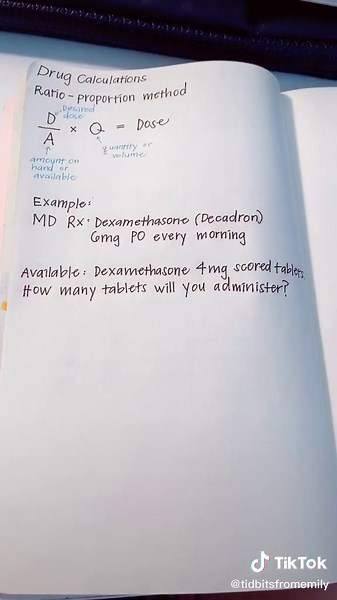 Drug Calculations
Ratio-proportion method
D
Desired dose
A
× Q = Dose
quantity or volume
amount on hand or available
Example:
MD Rx: Dexamethasone (Decadron)
6mg PO every morning
Available: Dexamethasone 4mg scored tablets
How many tablets will you administer?
TikTok
@tidbitsfromemily